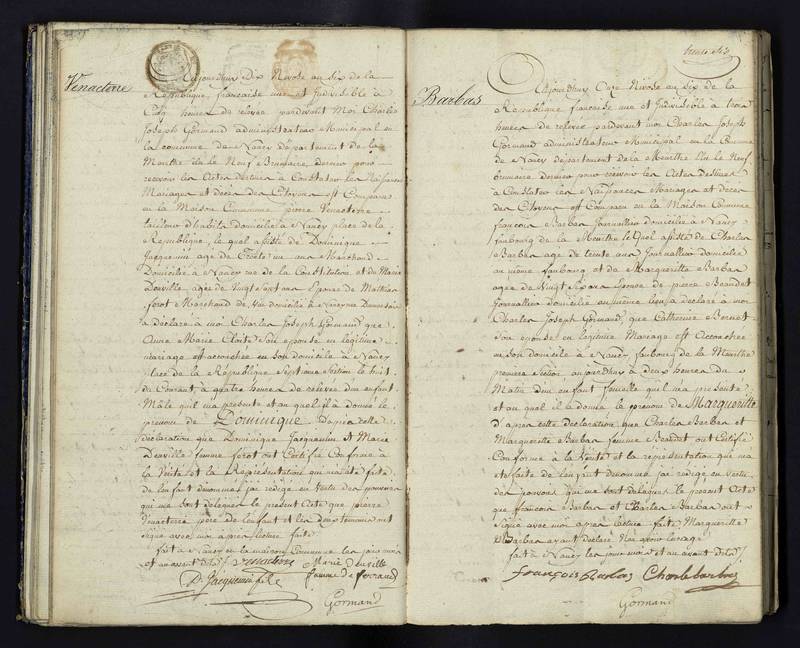 Venacterre
Aujourdhuy Dix Nivose au Six de la
Republique francaise une et Indivisible à
Cinq heures de relevée pardevant Moi Charles
Joseph Gormand administrateur Municipal en
la commune de Nancy département de la
Meurthe Elu le Neuf Brumaire dernier pour
recevoir les Actes destinés à Constater les Naissances
Mariages et décès des Citoyens est Comparu
en la Maison Commune pierre Venacterre
tailleur d'habits domicilié à Nancy place de la
Republique, le quel assisté de Dominique
Jacquemin agé de trente un ans Marchand
Domicilié à Nancy rue de la Constitution et de Marie
Deuville agée de Vingt Sept ans Epouse de Mathias
ferot Marchand de domicilié à Nancy
à déclaré à moi Charles Joseph Gormand que
Anne Marie Son épouse en légitime
mariage est accouchée en son domicile à Nancy
place de la Republique Septieme Section le huit
du Courant à quatre heures de relevée d'un enfant
Mâle qu'il m'a presenté et au quel il à donné le
prenom de Dominique D'après cette
déclaration que Dominique Jacquemin et Marie
Deuville femme ferot ont Certifié Conforme à
la Verité et la Représentation qui m'a été faite
de l'enfant dénommé j'ai rédigé en Vertu des pouvoirs
qui me sont délégués le present Acte que pierre
Venacterre père de l'enfant et les deux temoins ont
signé avec moi après lecture faite
fait à Nancy en la maison Commune les jour mois
et an avant dits
Marie deuville
D. Jacquemin fils femme de
Gormand
Barbas
Aujourdhuy Onze Nivose au Six de la
Republique francaise une et Indivisible à trois
heures de relevée pardevant moi Charles Joseph
Gormand administrateur Municipal en la Commune
de Nancy département de la Meurthe Elu le Neuf
brumaire dernier pour recevoir les Actes destinés
à Constater les Naissances Mariages et décès
des Citoyens est Comparu en la Maison Commune
francois Barbas Journallier domicilié à Nancy
faubourg de la Meurthe le Quel assisté de Charles
Barbas agé de trente ans Journallier domicilié
au même faubourg et de Margueritte Barbas
agée de Vingt Six ans Epouse de pierre Beaudet
Journallier domicilié au même lieu, à declaré à moi
Charles Joseph Gormand, que Catherine
Son epouse en legitime Mariage est Accouchée
en son domicile à Nancy faubourg de la Meurthe
premiere Section aujourdhuy à deux heures du
Matin d'un enfant femelle qu'il m'a presenté
et au quel il à donné le prenom de Margueritte
d'après cette déclaration que Charles Barbas et
Margueritte Barbas femme Beaudet ont Certifié
Conforme à la Verité et la représentation qui m'a
eté faite de l'enfant denommé j'ai rédigé en Vertu
des pouvoirs qui me sont délégués le présent Acte
que francois Barbas et Charles Barbas ont
signé avec moi après lecture faite Margueritte
Barbas ayant déclaré Ne savoir
fait à Nancy les jour mois et an avant dits
françois Barbas Charle barbas
Gormand